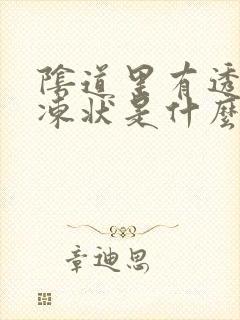 陰道里有透
凍狀是什麼
章迪思